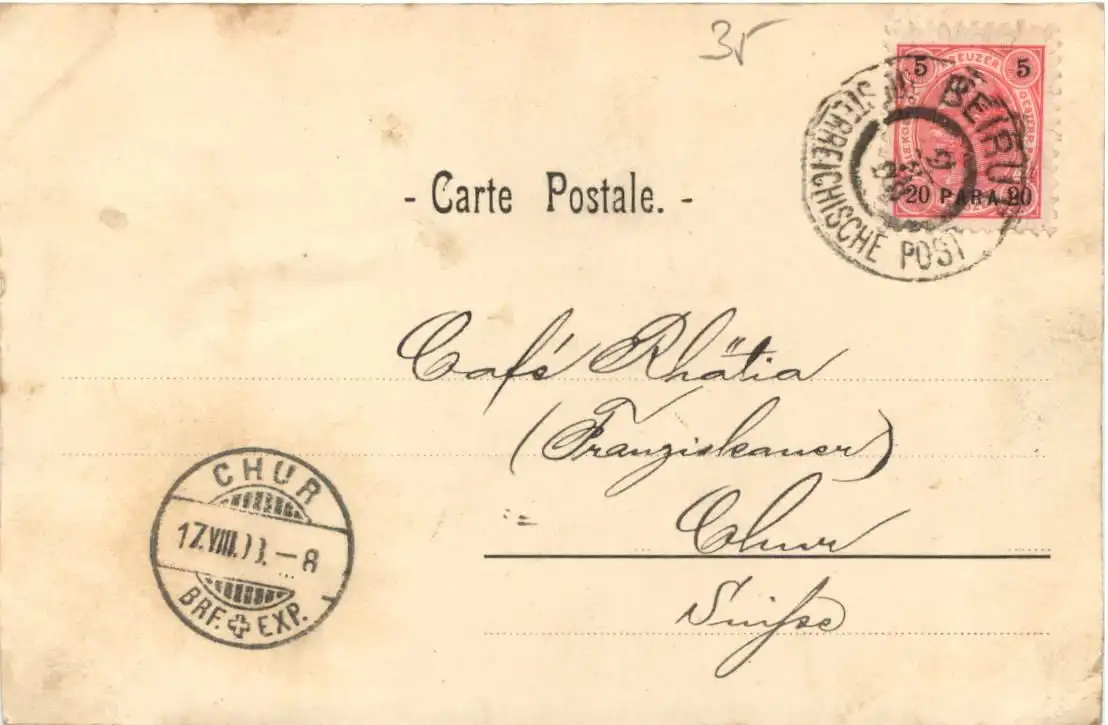 35
5 KREUZER 5
20 PARA 20
BEIRUT
ÖSTERREICHISCHE POST
- Carte Postale. -
Café Rhätia
(Franziskaner)
Chur
Suifse
CHUR
17.VIII. – 8
BRF. EXP.